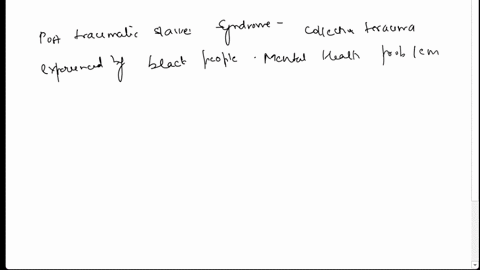 Post traumatic slave Syndrome - Collective terauma
experienced by black people. Mental Health problem